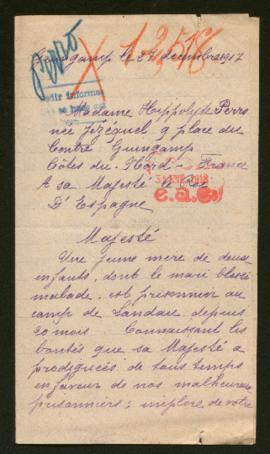 Guingamp le 24 decembre 1917
Perro
X 12518
Pedir informes
Madame Hippolyte Perro
née Jézéquel 9 place du
Centre Guingamp
Côtes du Nord - France
A sa Majesté le Roi
D'Espagne
Majesté
Une jeune mère de deux
enfants, dont le mari blessé
malade, est prisonnier au
camp de Landau depuis
20 mois. Connaissant les
bontés que sa Majesté a
prodiguées de tous temps
en faveur de nos malheureux
prisonniers; implore de votre